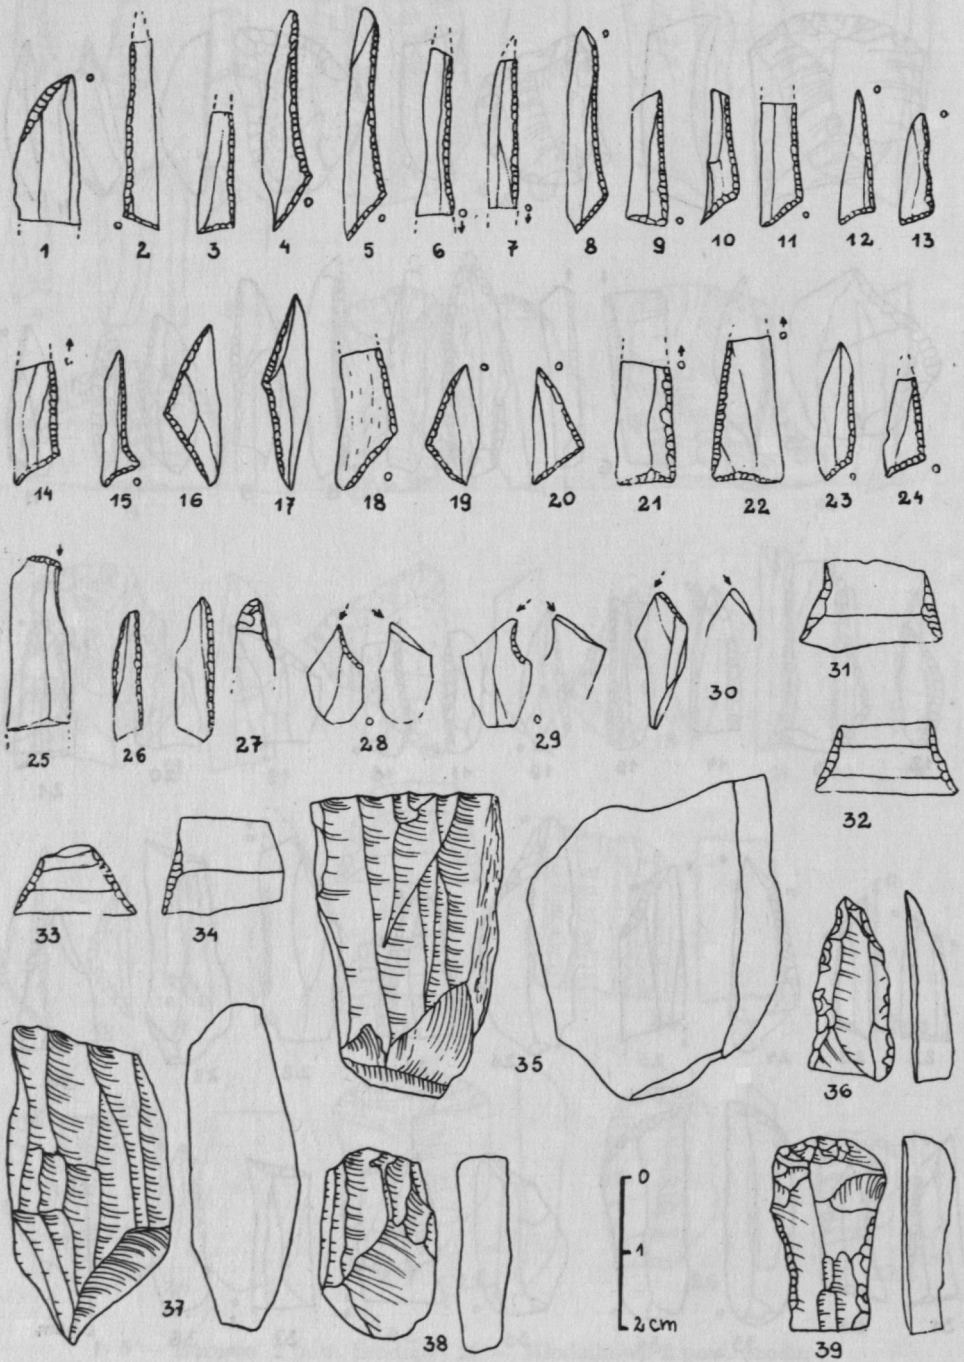 1 2 3 4 5 6 7 8 9 10 11 12 13
14 15 16 17 18 19 20 21 22 23 24
25 26 27 28 29 30 31
32
33 34 35 36
37 38 39
0
1
2 cm